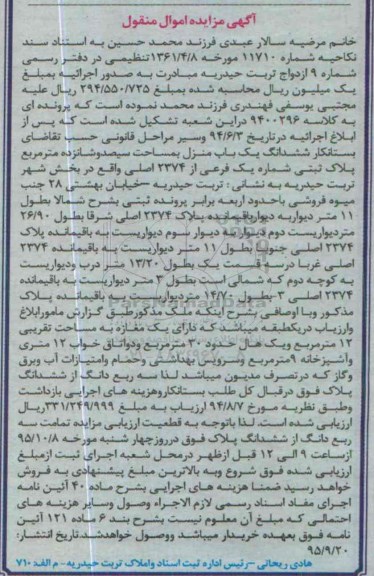 آگهی مزایده اموال منقول
خانم مرضیه سالار عبدی فرزند محمد حسین به استناد سند
نکاحیه شماره ۱۱۷۱۰ مورخه ۱۳۶۱/۴/۸ تنظیمی در دفتر رسمی
شماره ۹ ازدواج تربت حیدریه مبادرت به صدور اجرائیه بمبلغ
یک میلیون ریال محاسبه شده بمبلغ ۲۹۴/۵۵۰/۷۲۵ ریال علیه
مجتبی یوسفی قهندری فرزند محمد نموده است که پرونده ای
به کلاسه ۹۴۰۰۲۹۶ دراین شعبه تشکیل شده است که پس از
ابلاغ اجرائیه درتاریخ ۹۴/۶/۳ وسیر مراحل قانونی حسب تقاضای
بستانکار ششدانگ یک باب منزل بمساحت سیصدوشانزده مترمربع
پلاک ثبتی شماره یک فرعی از ۲۳۷۴ اصلی واقع در بخش شهر
تربت حیدریه به نشانی: تربت حیدریه –خیابان بهشتی ۲۸ جنب
میوه فروشی باحدود اربعه برابر پرونده ثبتی بشرح شمالا بطول
۱۱ متر دیواربه دیوارباقیمانده پلاک ۲۳۷۴ اصلی شرقا بطول ۲۶/۹۰
متردیواریست دوم دیواربه دیوار سوم دیواریست به باقیمانده پلاک
۲۳۷۴ اصلی جنوبا بطول ۱۱ متر دیواریست به باقیمانده ۲۳۷۴
اصلی غربا درسه قسمت یک بطول ۱۳/۲۰ متر درب ودیواریست
به کوچه دوم که شمالی است بطول ۳ متر دیواریست به باقیمانده
۲۳۷۴ اصلی ۳-بطول ۱۴/۷۰ متردیواریست به باقیمانده پلاک
مذکور وبا اوصافی بشرح اینکه ملک مذکورطبق گزارش مامورابلاغ
وارزیاب دریکطبقه میباشد که دارای یک مغازه به مساحت تقریبی
۱۲ مترمربع ویک هال حدود ۳۰ مترمربع ودواتاق خواب ۱۲ متری
وآشپزخانه ۹مترمربع وسرویس بهداشتی وحمام وامتیازات آب وبرق
وگاز که درتصرف مدیون میباشد لذا سه ربع دانگ از ششدانگ
پلاک فوق درقبال کل طلب بستانکاروهزینه های اجرایی بازداشت
وطبق نظریه مورخ ۹۴/۸/۷ ارزیاب به مبلغ ۳۳۱/۲۴۹/۹۹۹ریال
ارزیابی شده است. لذا باتوجه به قطعیت ارزیابی مزایده تمامت سه
ربع دانگ از ششدانگ پلاک فوق درروزچهار شنبه مورخه ۹۵/۱۰/۸
ازساعت ۹ الی ۱۲ قبل ازظهر درمحل شعبه اجرای ثبت ازمبلغ
ارزیابی شده فوق شروع وبه بالاترین مبلغ پیشنهادی به فروش
خواهد رسید ضمنا هزینه های اجرایی بشرح ماده ۴۰ آئین نامه
اجرای مفاد اسناد رسمی لازم الاجراء وصول وسایر هزینه های
احتمالی که مبلغ آن معلوم نیست بشرح بند ۶ ماده ۱۲۱ آئین
نامه فوق بعهده خریدار میباشد ووصول خواهدشد.تاریخ انتشار:
۹۵/۹/۲۰
هادی ریحانی –رئیس اداره ثبت اسناد واملاک تربت حیدریه- م الف: ۷۱۰